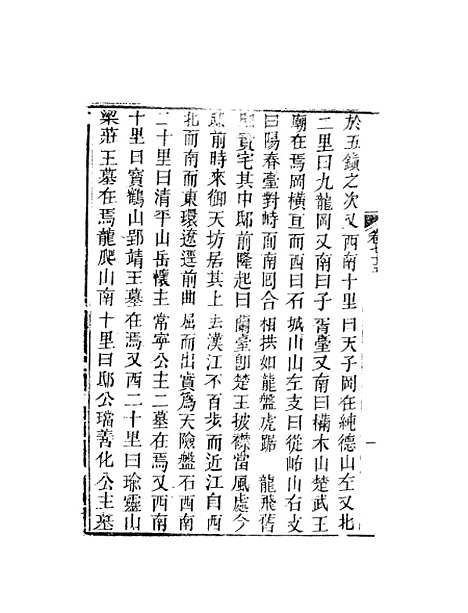 於五鎮之次又西南十里曰天子岡在純德山左又北
二里曰九龍岡又南曰子胥臺又南曰橘木山楚武王
廟在焉岡橫亘而西曰石城山山左支曰從岵山右支
曰陽春臺對峙而南囘合相拱如龍盤虎踞 龍飛舊
寶宅其中邸前隆起曰蘭臺卽楚王披襟當風處今
邸前時來御天坊居其上去漢江不百步而近江自西
北而南而東環遶逕前曲屈而出實爲天險盤石西南
二十里曰清平山岳懷王常寧公主二墓在焉又西南
十里曰寶鶴山郢靖王墓在焉又西二十里曰瑜靈山
梁莊王墓在焉龍爬山南十里曰邸公璫善化公主墓